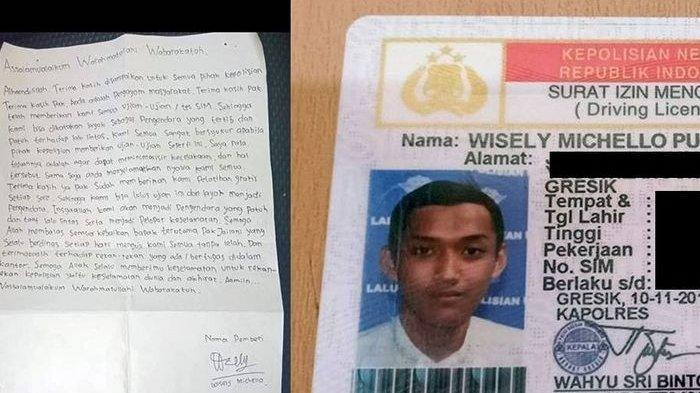 Assalamualaikum Warahmatullahi Wabarakatuh.
Alhamdulillah. Terima kasih disampaikan untuk semua pihak kepolisian
Terima kasih Pak, beda adalah pengayom masyarakat. Terima kasih Pak
telah memberikan kami semua Ujian - Ujian / tes SIM. Sehingga
kami bisa dikatakan layak sebagai Pengendara yang tertib dan
Patuh terhadap lalu lintas. kami semua sangat bersyukur apabila
Pihak kepolisian memberikan Ujian - Ujian Seperti ini, Saya nilai
tujuannya adalah agar dapat meminimalisir kecelakaan, dan hal
tersebut sama saja anda menyelamatkan nyawa kami semua.
Terima kasih ya Pak sudah memberikan kami Pelatihan gratis
Setiap sore. Sehingga kami bisa lulus ujian ini dan layak menjadi
Pengendara. Insyaallah kami akan menjadi Pengendara yang patuh
dan taat lalu lintas serta menjadi Pelopor keselamatan. Semoga
Allah membalas semua kebaikan bapak terutama Pak Jailani yang
Selalu berdinas setiap hari menguji kami semua tanpa lelah. Dan
terimakasih terhadap rekan-rekan yang ada / bertugas didalam
kantor. Semoga Allah Selalu memberimu keselamatan untuk rekan-
rekan kepolisian yaitu keselamatan dunia dan akhirat. Aamiin...
Wassalamualaikum Warahmatullahi Wabarakatuh.
Nama Pemberi
Wisely Michello
KEPOLISIAN NE
REPUBLIK INDO
SURAT IZIN MENG
( Driving Licen
Nama: WISELY MICHELLO PU
Alamat:
GRESIK
Tempat &
Tgl Lahir
Tinggi
Pekerjaan
No. SIM
Berlaku s/d:
GRESIK, 10-11-201
KAPOLRES
KEPALA
WAHYU SRI BINTO